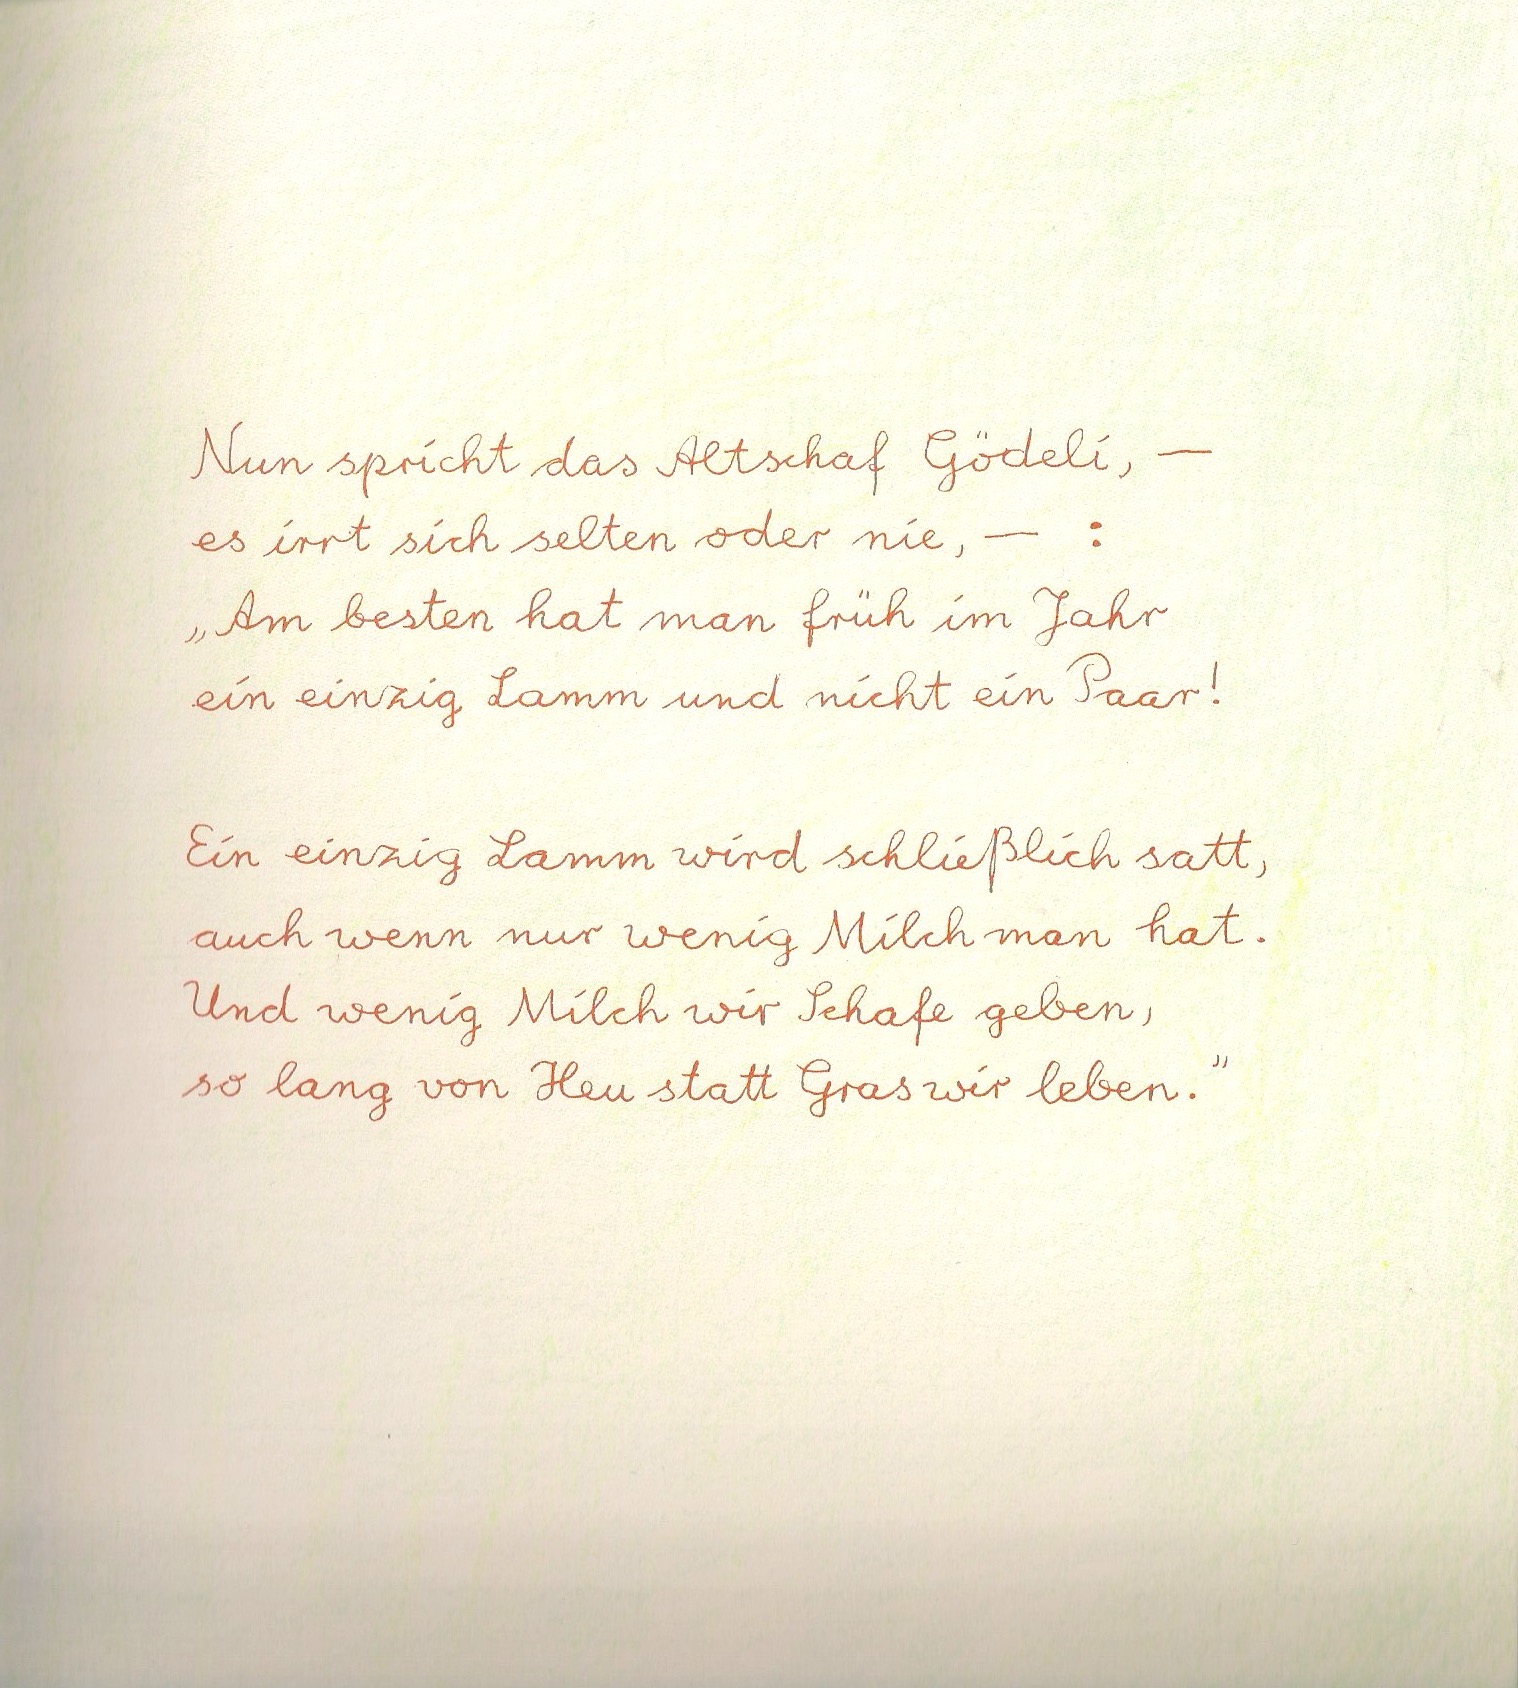 Nun spricht das Altschaf Gödeli, —
es irrt sich selten oder nie, — :
„Am besten hat man früh im Jahr
ein einzig Lamm und nicht ein Paar!
Ein einzig Lamm wird schließlich satt,
auch wenn nur wenig Milch man hat.
Und wenig Milch wir Schafe geben,
so lang von Heu statt Gras wir leben.”